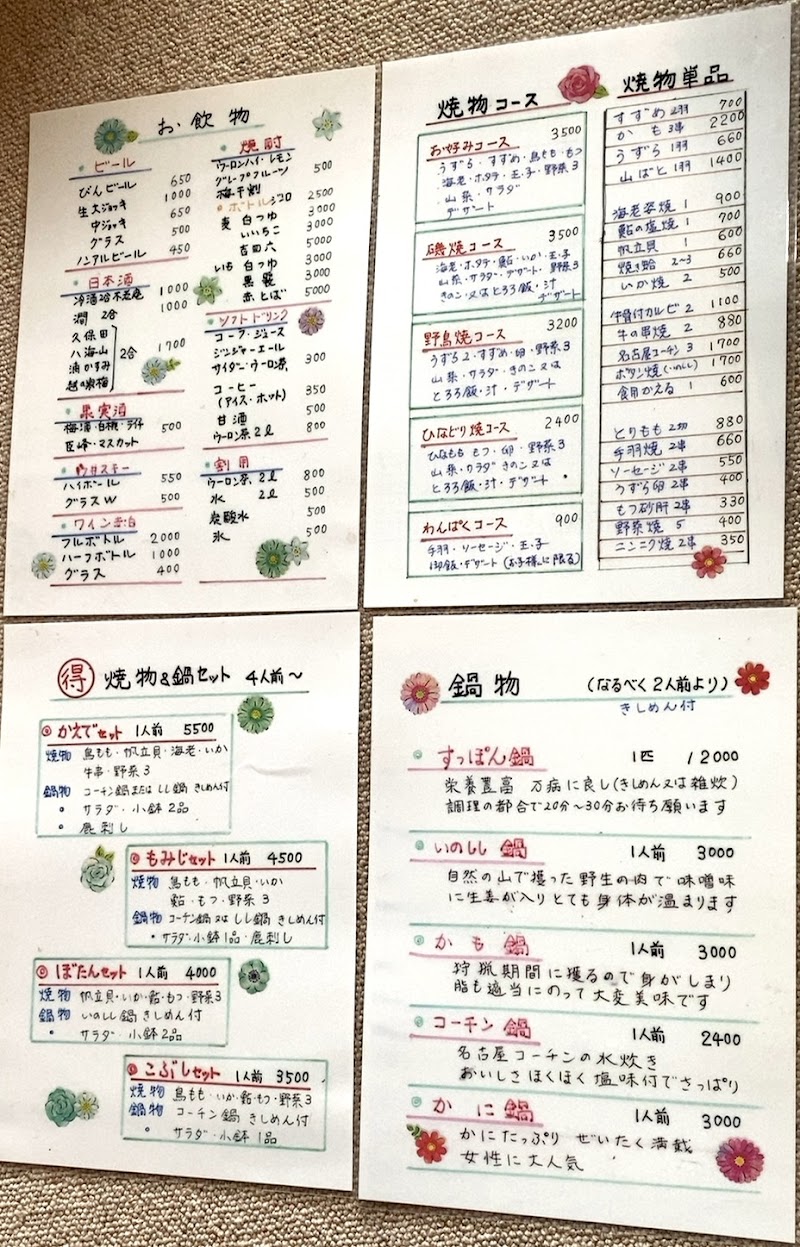 お飲物
ビール
びんビール 650
生大ジョッキ 1000
中ジョッキ 650
グラス 500
ノンアルビール 450
日本酒
1000
燗 2合 1000
久保田
八海山
浦かすみ
越の寒梅
2合 1700
果実酒
梅酒・白桃・ライチ
巨峰・マスカット
500
ウイスキー
ハイボール 550
グラスW 500
ワイン
フルボトル 2000
ハーフボトル 1000
グラス 400
焼酎
ウーロンハイ・レモン
グレープフルーツ
梅干割
500
ボトル
2500
麦 白つゆ 3000
いいちこ 3000
吉四六 5000
いも 白つゆ 3000
黒霧 3000
赤とば 5000
ソフトドリンク
コーラ・ジュース
ジンジャーエール
サイダー・ウーロン茶
300
コーヒー
(アイス・ホット)
350
甘酒 500
ウーロン茶 2ℓ 800
割用
ウーロン茶 2ℓ 800
水 2ℓ 500
炭酸水 500
氷 500
焼物コース
お好みコース 3500
うずら・すずめ・鳥もも・もつ
海老・ホタテ・玉・子・野菜3
山菜・サラダ
デザート
磯焼コース 3500
海老・ホタテ・鮎・いか・玉・子
山菜・サラダ・デザート・野菜3
きのこ・又はとろろ飯・汁
デザート
野鳥焼コース 3200
うずら2・すずめ・卵・野菜3
山菜・サラダ・きのこ又は
とろろ飯・汁・デザート
ひなどり焼コース 2400
ひなもも もつ・卵・野菜3
山菜・サラダ きのこ又は
とろろ飯・汁・デザート
わんぱくコース 900
手羽・ソーセージ・玉・子
御飯・デザート(お子様に限る)
焼物単品
すずめ 2羽 700
かも 3串 2200
うずら 1羽 660
山ばと 1羽 1400
海老姿焼 1 900
鮎の塩焼 1 700
帆立貝 1 600
焼き蛤 2〜3 660
いか焼 2 500
牛骨付カルビ 2 1100
牛の串焼 2 880
名古屋コーチン 3 1700
ボタン焼(いのしし) 1700
食用かえる 1 600
とりもも 2切 880
手羽焼 2串 660
ソーセージ 2串 550
うずら卵 2串 400
もつ砂肝 2串 330
野菜焼 5 400
ニンニク焼 2串 350
得 焼物&鍋セット 4人前〜
かえでセット 1人前 5500
焼物 鳥もも・帆立貝・海老・いか
牛串・野菜3
鍋物 コーチン鍋またはしし鍋 きしめん付
・ サラダ・小鉢2品
・ 鹿刺し
もみじセット 1人前 4500
焼物 鳥もも・帆立貝・いか
鮎・もつ・野菜3
鍋物 コーチン鍋又はしし鍋 きしめん付
・サラダ・小鉢1品・鹿刺し
ぼたんセット 1人前 4000
焼物 帆立貝・いか・鮎・もつ・野菜3
鍋物 いのしし鍋 きしめん付
・ サラダ・小鉢2品
こぶしセット 1人前 3500
焼物 鳥もも・いか・鮎・もつ・野菜3
鍋物 コーチン鍋 きしめん付
・ サラダ・小鉢1品
鍋物 (なるべく2人前より)
きしめん付
すっぽん鍋 1匹 12000
栄養豊富 万病に良し(きしめん又は雑炊)
調理の都合で20分〜30分お待ち願います
いのしし鍋 1人前 3000
自然の山で獲った野生の肉で味噌味
に生姜が入りとても身体が温まります
かも鍋 1人前 3000
狩猟期間に獲るので身がしまり
脂も適当にのって大変美味です
コーチン鍋 1人前 2400
名古屋コーチンの水炊き
おいしさほくほく塩味付でさっぱり
かに鍋 1人前 3000
かにたっぷり ぜいたく満載
女性に大人気